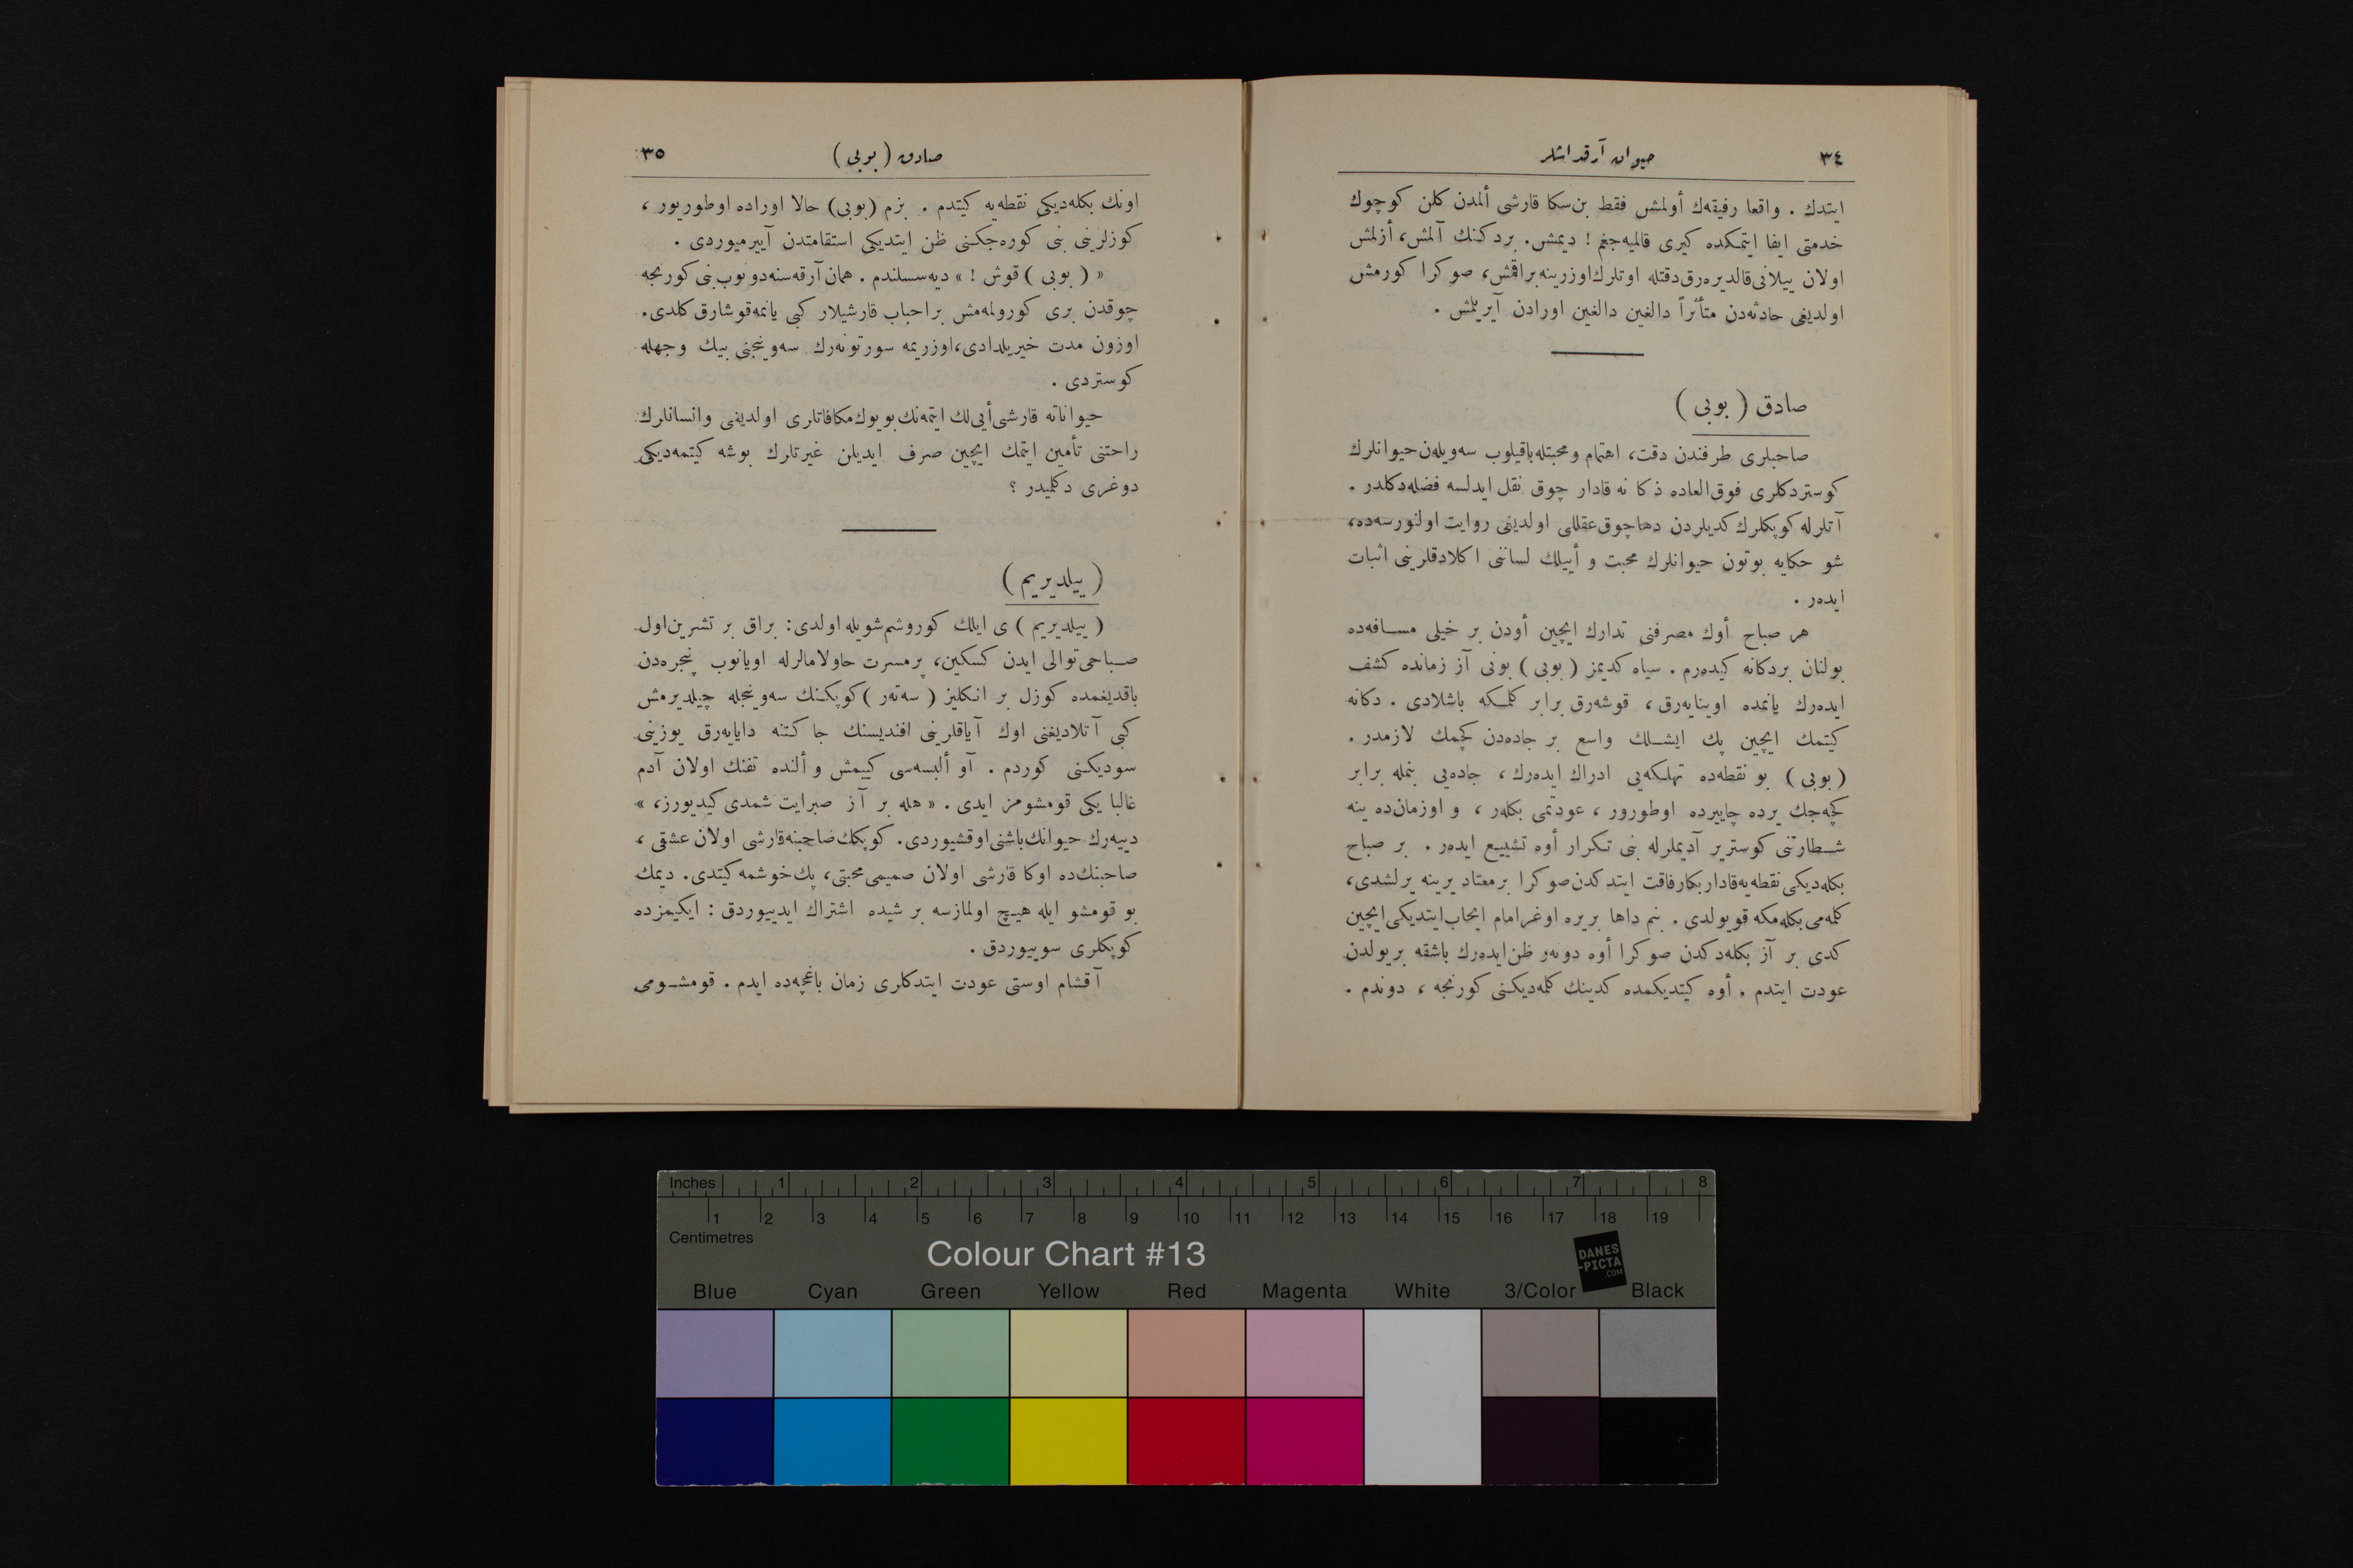 ٣٤
حيوان آرقداشلر
ايتدك . واقعا رفيقه‌ك أولمش فقط بن‌سكا قارشى ألمدن كلن كوچوك
خدمتى ايفا ايتمكده كيرى قالميه‌جغم ! ديمش. بردكنك آلمش، أزلمش
اولان ييلانى‌قالديره‌رق‌دقتله اوتلرك‌اوزرينه‌براقمش، صوكرا كورمش
اولديغى حادثه‌دن متأثراً دالغين دالغين اورادن آيريلمش .
صادق ( بوبى )
صاحبلرى طرفندن دقت، اهتمام ومحبتله‌باقيلوب سه‌ويله‌ن‌حيوانلرك
كوستردكلرى فوق‌العاده ذكا نه قادار چوق نقل ايدلسه فضله‌دكلدر .
آتلرله كوپكلرك كديلردن دهاچوق‌عقللى اولديغى روايت اولنورسه‌ده،
شو حكايه بوتون حيوانلرك محبت و أييلك لساننى اكلادقلرينى اثبات
ايده‌ر .
هر صباح أوك مصرفنى تدارك ايچين أودن بر خيلى مسافه‌ده
بولنان بردكانه كيده‌رم . سياه كديمز ( بوبى ) بونى آز زمانده كشف
ايده‌رك يانمده اوينايه‌رق ، قوشه‌رق برابر كلمكه باشلادى . دكانه
كيتمك ايچين پك ايشلك واسع بر جاده‌دن كچمك لازمدر .
( بوبى ) بو نقطه‌ده تهلكه‌يى ادراك ايده‌رك ، جاده‌يى بنمله برابر
كچه‌جك يرده چاييرده اوطورور ، عودتمى بكلەر ، و اوزمان‌ده ينه
شطارتنى كوسترير آديملرله بنى تكرار أوه تشييع ايده‌ر . بر صباح
بكله‌ديكى نقطه‌يه‌قادار بكا رفاقت ايتدكدن‌صوكرا برمعتاد يرينه يرلشدى،
كلمه‌مى بكله‌مكه قويولدى . بنم داها بريره اوغرامام ايجاب‌ايتديكى‌ايچين
كدى بر آز بكله‌دكدن صوكرا أوه دونه‌ر ظن‌ايده‌رك باشقه بريولدن
عودت ايتدم . أوه كيتديكمده كدينك كلمه‌ديكنى كورنجه ، دوندم .
صادق ( بوبى )
٣٥
اونك بكله‌ديكى نقطه‌يه كيتدم . بزم (بوبى) حالا اوراده اوطوريور ،
كوزلرينى بنى كوره‌جكنى ظن ايتديكى استقامتدن آييرميوردى .
« ( بوبى ) قوش ! » ديه‌سسلندم . همان آرقه‌سنه‌دونوب‌بنى كورنجه
چوقدن برى كورولمه‌مش براحباب قارشيلار كبى يانمه‌قوشارق كلدى.
اوزون مدت خيريلدادى،اوزريمه سورتونه‌رك سه‌وينجنى بيك وجهله
كوستردى .
حيواناته قارشى‌أيى‌لك ايتمه‌نك‌بويوك‌مكافاتلرى اولديغى وانسانلرك
راحتنى تأمين ايتمك ايچين صرف ايديلن غيرتلرك بوشه كيتمه‌ديكى
دوغرى دكلميدر ؟
( ييلديريم )
( ييلديريم ) ى ايلك كوروشم‌شويله‌اولدى: براق بر تشرين‌اول
صباحى‌توالى ايدن كسكين، پرمسرت حاولامالرله اويانوب پنجره‌دن
باقديغمده كوزل بر انكليز ( سه‌تەر ) كوپكنك سه‌وينجله چيلديرمش
كبى آتلاديغنى اوك آياقلرينى افنديسنك جاكتنه دايايه‌رق يوزينى
سوديكنى كوردم . آو ألبسه‌سى كييمش و ألنده تفنك اولان آدم
غالبا يكى قومشومز ايدى . « هله بر آز صبرايت شمدى كيديورز، »
دييه‌رك حيوانك‌باشنى‌اوقشيوردى. كوپكك‌صاحبنه‌قارشى اولان عشقى ،
صاحبنك‌ده اوكا قارشى اولان صميمى‌محبتى، پك‌خوشمه كيتدى. ديمك
بو قومشو ايله هيچ اولمازسه بر شيده اشتراك ايدييوردق : ايكيمزده
كوپكلرى سوييوردق .
آقشام اوستى عودت ايتدكلرى زمان باغچه‌ده ايدم . قومشومى
Inches 1 2 3 4 5 6 7 8
1 2 3 4 5 6 7 8 9 10 11 12 13 14 15 16 17 18 19
Centimetres
Colour Chart #13
DANES
-PICTA
.COM
Blue Cyan Green Yellow Red Magenta White 3/Color Black